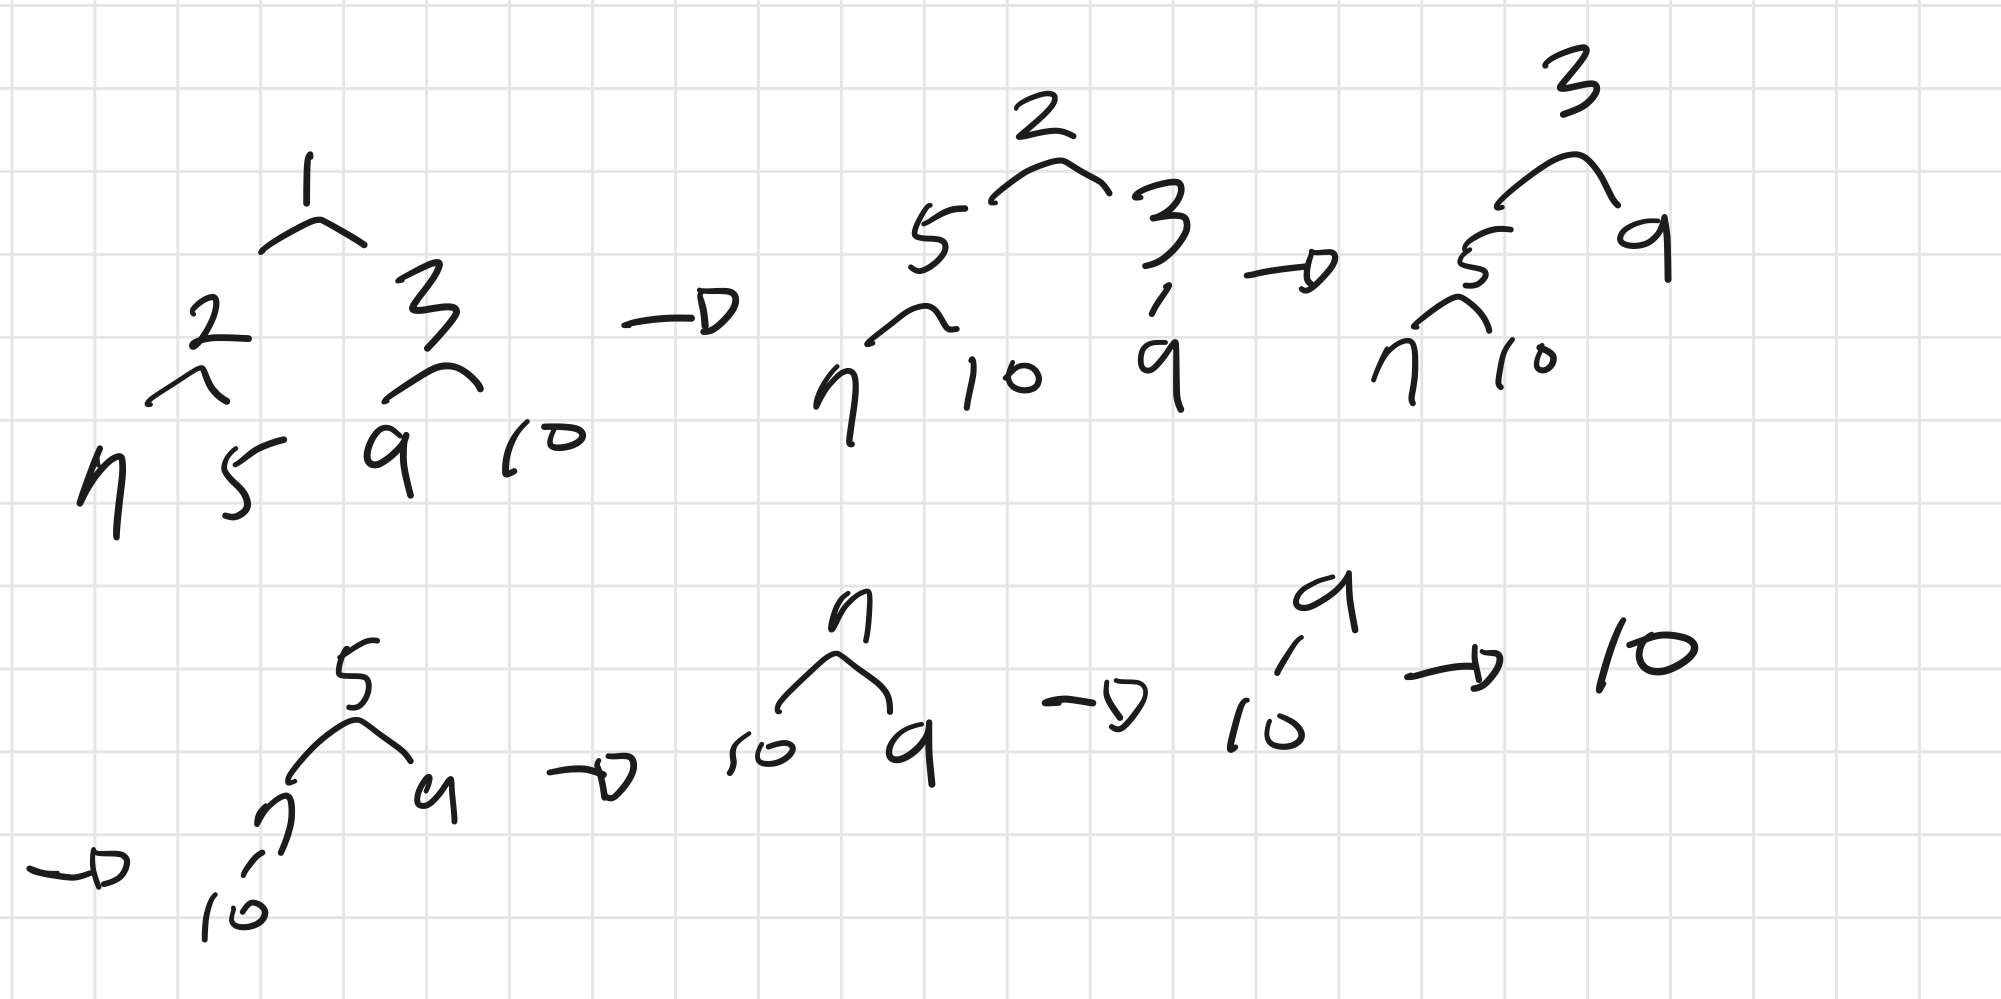 1
2 3
7 5 9 10
→
2
5 3
7 10 9
→
3
5 9
7 10
→
5
7 9
10
→
7
10 9
→
9
10
→
10